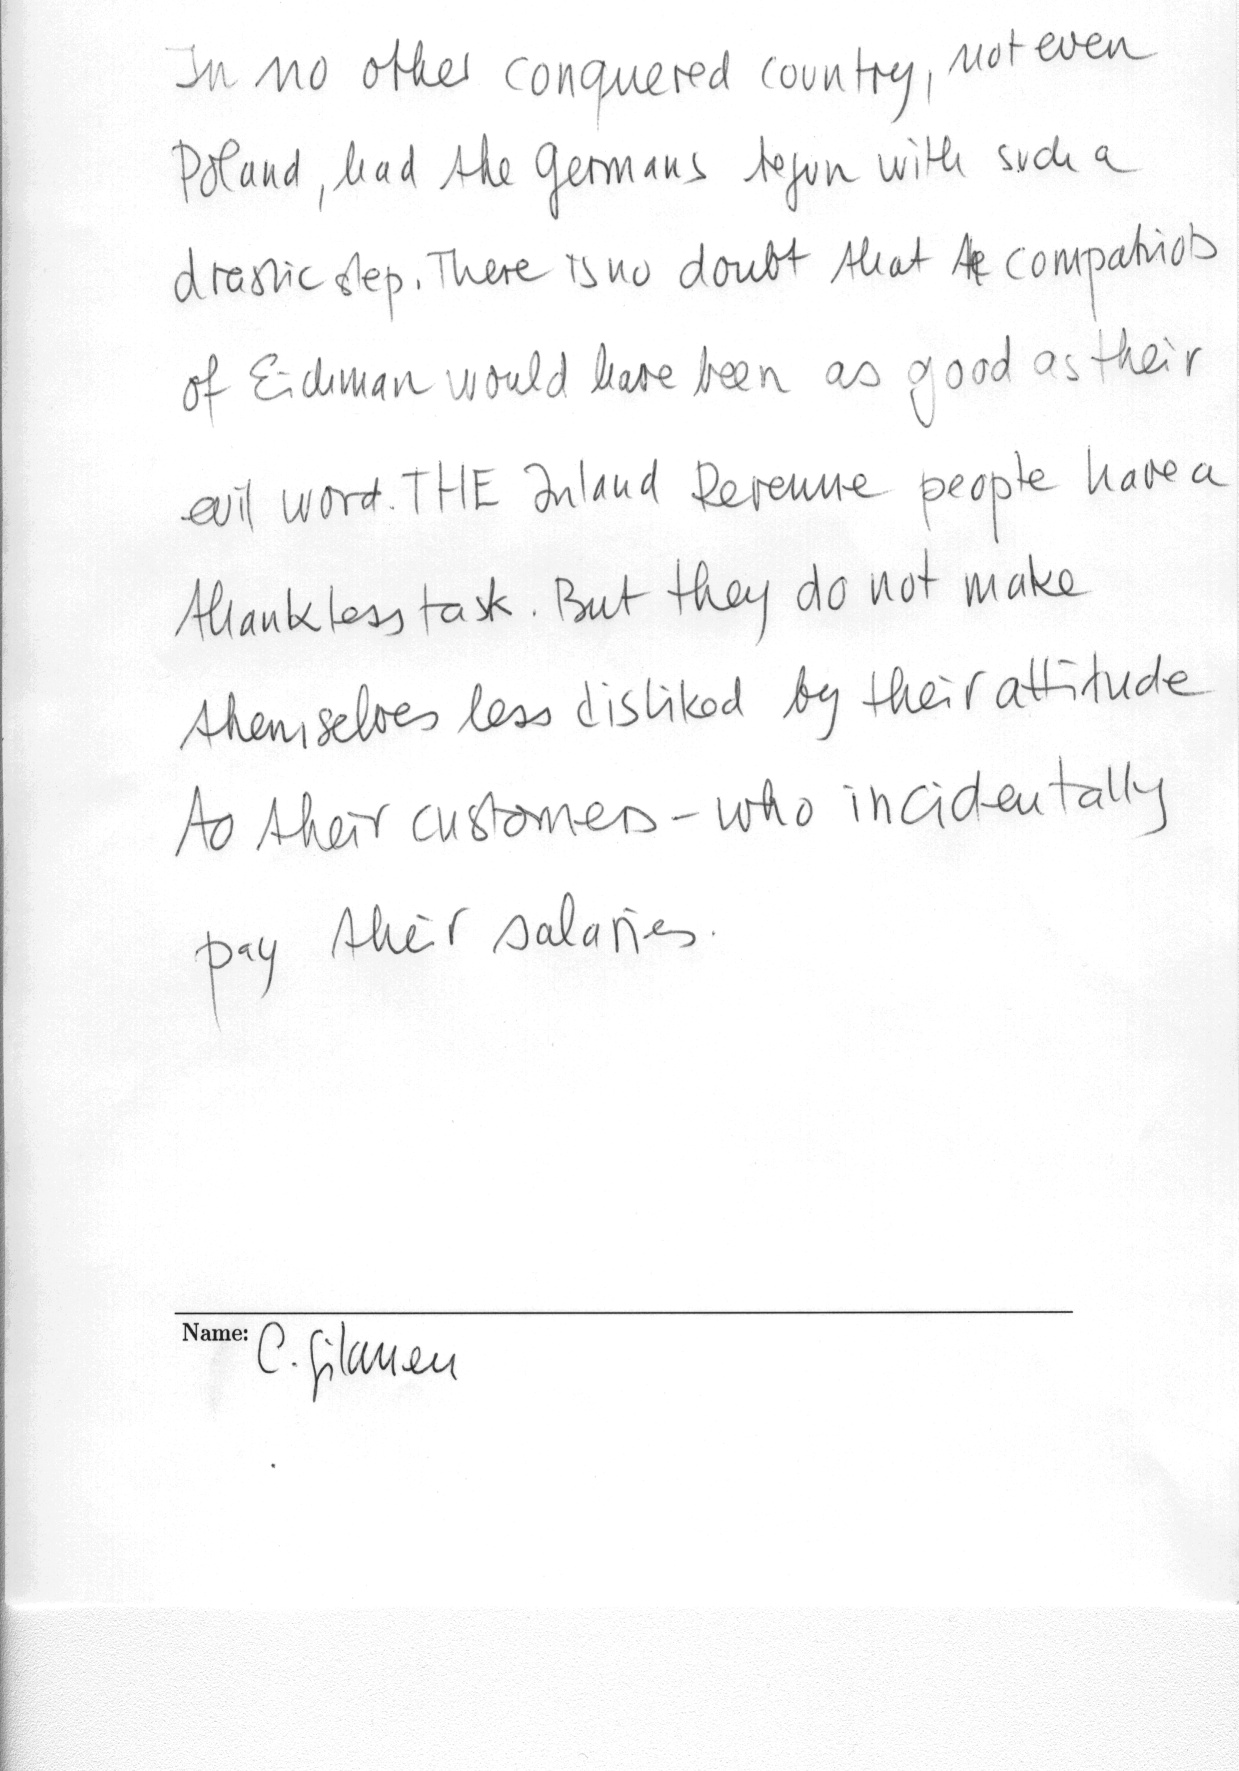 In no other conquered country, not even
Poland, had the Germans begun with such a
drastic step. There is no doubt that the compatriots
of Eichman would have been as good as their
evil word. THE Inland Revenue people have a
thankless task. But they do not make
themselves less disliked by their attitude
to their customers - who incidentally
pay their salaries.
Name: C.